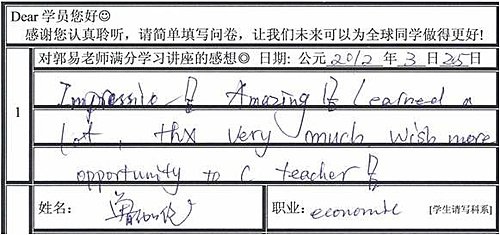 Dear 学员您好☺
感谢您认真聆听，请简单填写问卷，让我们未来可以为全球同学做得更好!
对郭易老师满分学习讲座的感想☺ 日期: 公元 2012 年 3 日 25 日
1
Impressive! Amazing! learned a
lot, thx very much wish more
opportunity to c teacher!
姓名:
职业: economic [学生请写科系]